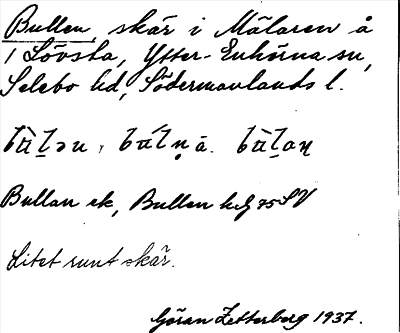 Bullen, skär i Mälaren å
1 Lövsta, Ytter-Enhörna sn,
Selebo hd, Södermanlands l.
Bullan ek, Bullen hdg 75 SV
Litet runt skär.
Göran Zetterberg 1937.